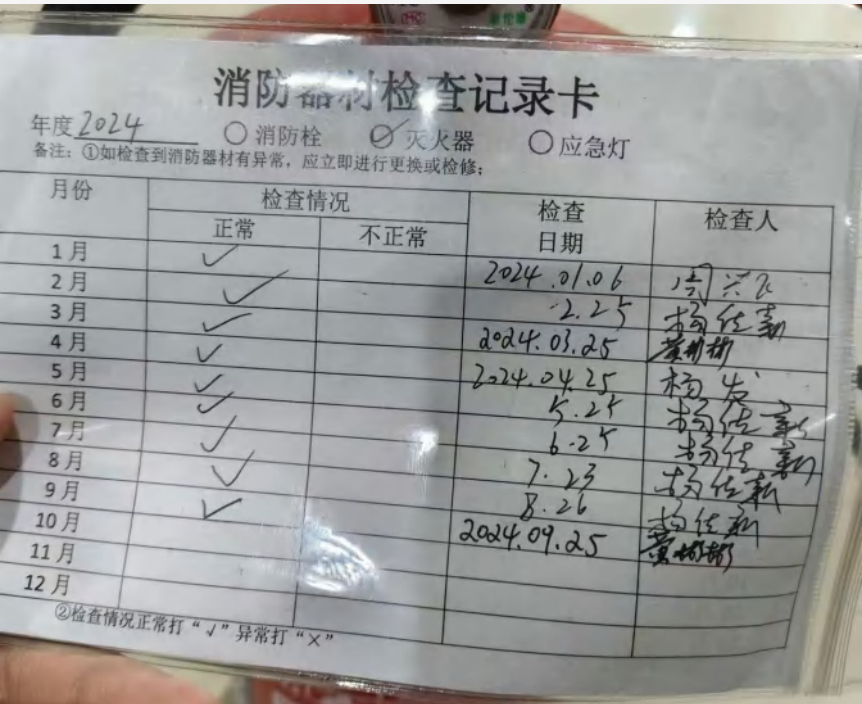 消防器材检查记录卡
年度2024 ○消防栓 ⊘灭火器 ○应急灯
备注：①如检查到消防器材有异常，应立即进行更换或检修；
月份 检查情况 检查日期 检查人
正常 不正常
1月 ✓ 2024.01.06 周兴飞
2月 ✓ 2.25 杨佐新
3月 ✓ 2024.03.25 黄彬彬
4月 ✓ 2024.04.25 杨发
5月 ✓ 5.25 杨佐新
6月 ✓ 6.25 杨佐新
7月 ✓ 7.23 杨佐新
8月 ✓ 8.26 杨佐新
9月 ✓ 2024.09.25 黄彬彬
10月
11月
12月
②检查情况正常打“√”异常打“×”